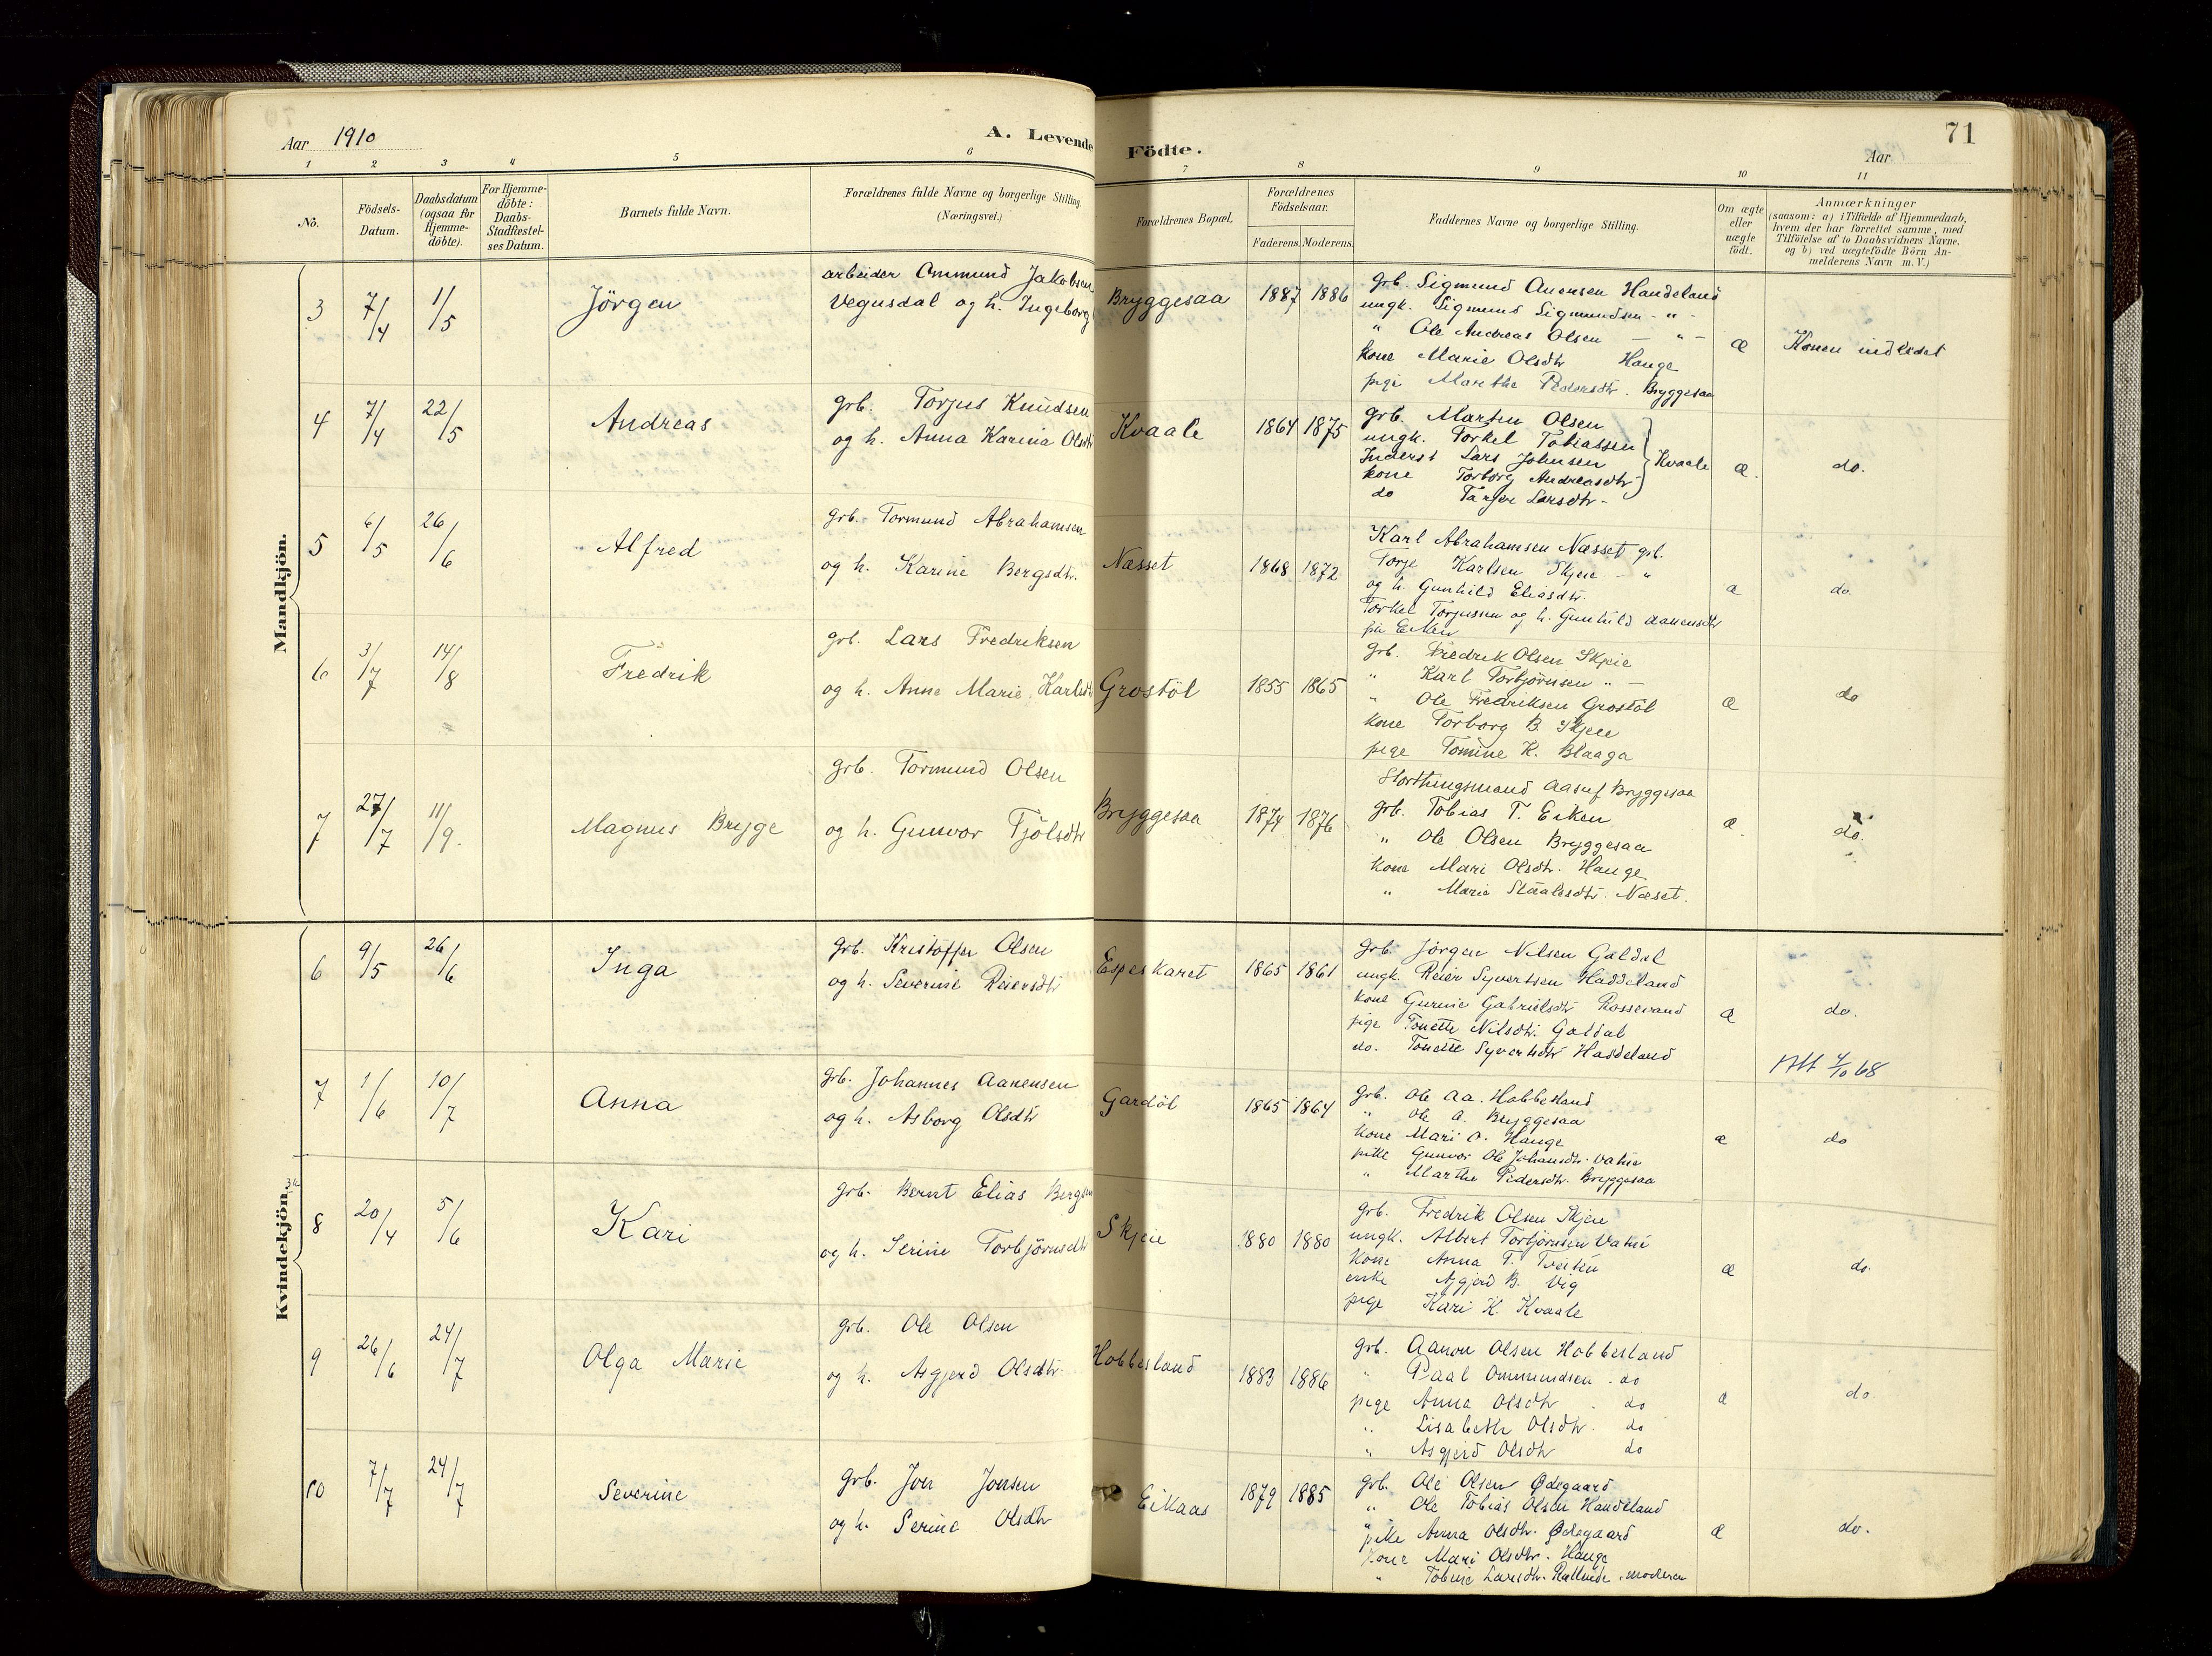 71
Aar 1910
A. Levende Födte.
Aar
1 2 3 4 5 6 7 8 9 10 11
No.
Födsels-Datum.
Daabsdatum (ogsaa for Hjemme-döbte).
For Hjemme-döbte: Daabs-Stadfæstel-ses Datum.
Barnets fulde Navn.
Forældrenes fulde Navne og borgerlige Stilling. (Næringsvei.)
Forældrenes Bopæl.
Forældrenes Födselsaar.
Faderens. Moderens.
Faddernes Navne og borgerlige Stilling.
Om ægte eller uægte födt.
Anmærkninger
(saasom: a) i Tilfælde af Hjemmedaab,
hvem der har forrettet samme, med
Tilföielse af to Daabsvidners Navne.
og b) ved uægtefödte Börn An-
melderens Navn m. V.)
Mandkjön.
3 7/4 1/5 Jörgen
arbeider Ommund Jakobsen
Vegusdal og h. Ingeborg
Bryggesaa 1887 1886
grb. Sigmund Anensen Handeland
ungk. Sigmund Sigmundsen - " -
" Ole Andreas Olsen - " -
kone Marie Olsdtr Hauge
pige Marthe Pedersdtr. Bryggesaa
æ Konen indledet
4 7/4 22/5 Andreas
grb. Torjus Knudsen
og h. Anna Karina Olsdtr
Kvaale 1864 1875
grb. Martin Olsen
ungk. Torkel Tobiassen
Inderst Lars Johnsen
kone Torborg Andreasdtr
do Tarjer Larsdtr -
Kvaale
æ. do.
5 6/5 26/6 Alfred
grb. Tormund Abrahamsen
og h. Karine Bergsdtr.
Næsset 1868 1872
Karl Abrahamsen Næsset grb.
Torje Karlsen Skjeie - "
og h. Gunhild Eliasdtr.
Torkel Torjussen og h. Gunhild Aanensdtr
paa Eiken
æ do.
6 3/7 14/8 Fredrik
grb. Lars Fredriksen
og h. Anne Marie Karlsdtr
Grostöl 1855 1865
grb. Fredrik Olsen Skjeie
" Karl Torbjörnsen " -
" Ole Fredriksen Grostöl
kone Torborg B. Skjeie
pige Tomine K. Blaaga
æ do
7 27/7 11/9. Magnus Brygge
grb. Tormund Olsen
og h. Gunvor Fjölsdtr
Bryggesaa 1874 1876
Storthingsmand Aasuf Bryggesaa
grb. Tobias T. Eiken
" Ole Olsen Bryggesaa
kone Mari Olsdtr. Hauge
" Marie Staalesdtr. Næset.
æ. do.
Kvindekjön.
6 9/5 26/6 Inga
grb. Kristoffer Olsen
og h. Severine Reiersdtr
Espeskaret 1865 1861
grb. Jörgen Nilsen Galdal
ungk. Reier Syvertsen Haddeland
kone Gurine Gabrielsdtr Rossevand
pige Tonette Nilsdtr. Galdal
do. Tonette Syvertsdtr Haddeland
æ do.
Att 4/10 68
7 1/6 10/7 Anna
grb. Johannes Aanensen
og h. Asborg Olsdtr
Gardöl 1865 1864
grb. Ole Aa. Hobbesland
" Ole A. Bryggesaa
kone Mari O. Hauge
pike Gunvor Ole Johansdtr. Vatne
" Marthe Pedersdtr. Bryggesaa
æ do
8 20/4 5/6 Kari
grb. Bernt Elias Bergsen
og h. Serine Torbjörnsdtr
Skjeie 1880 1880
grb. Fredrik Olsen Skjeie
ungk. Albert Torbjörnsen Vatne
kone Anna T. Tveiten
enke Asgjerd B. Vig
pige Kari K. Kvaale
æ do.
9 26/6 24/7 Olga Marie
grb. Ole Olsen
og h. Asgjerd Olsdtr.
Hobbesland 1883 1886
grb. Aanon Olsen Hobbesland
" Paal Ommundsen . do
pige Anna Olsdtr . do
" Lisabeth Olsdtr. do
" Asgjerd Olsdtr do
æ do.
10 7/7 24/7 Severine
grb. Jon Jonsen
og h. Serine Olsdtr
Eikaas 1879 1885
grb. Ole Olsen Ødegaard
" Ole Tobias Olsen Handeland
pike Anna Olsdtr. Ødegaard
kone Mari Olsdtr. Hauge
" Tobine Larsdtr. moderen
æ do.